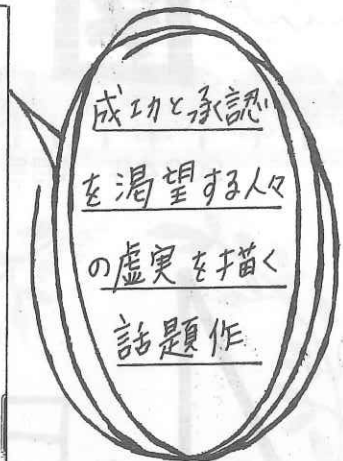 成功と承認
を渇望する人々
の虚実を描く
話題作